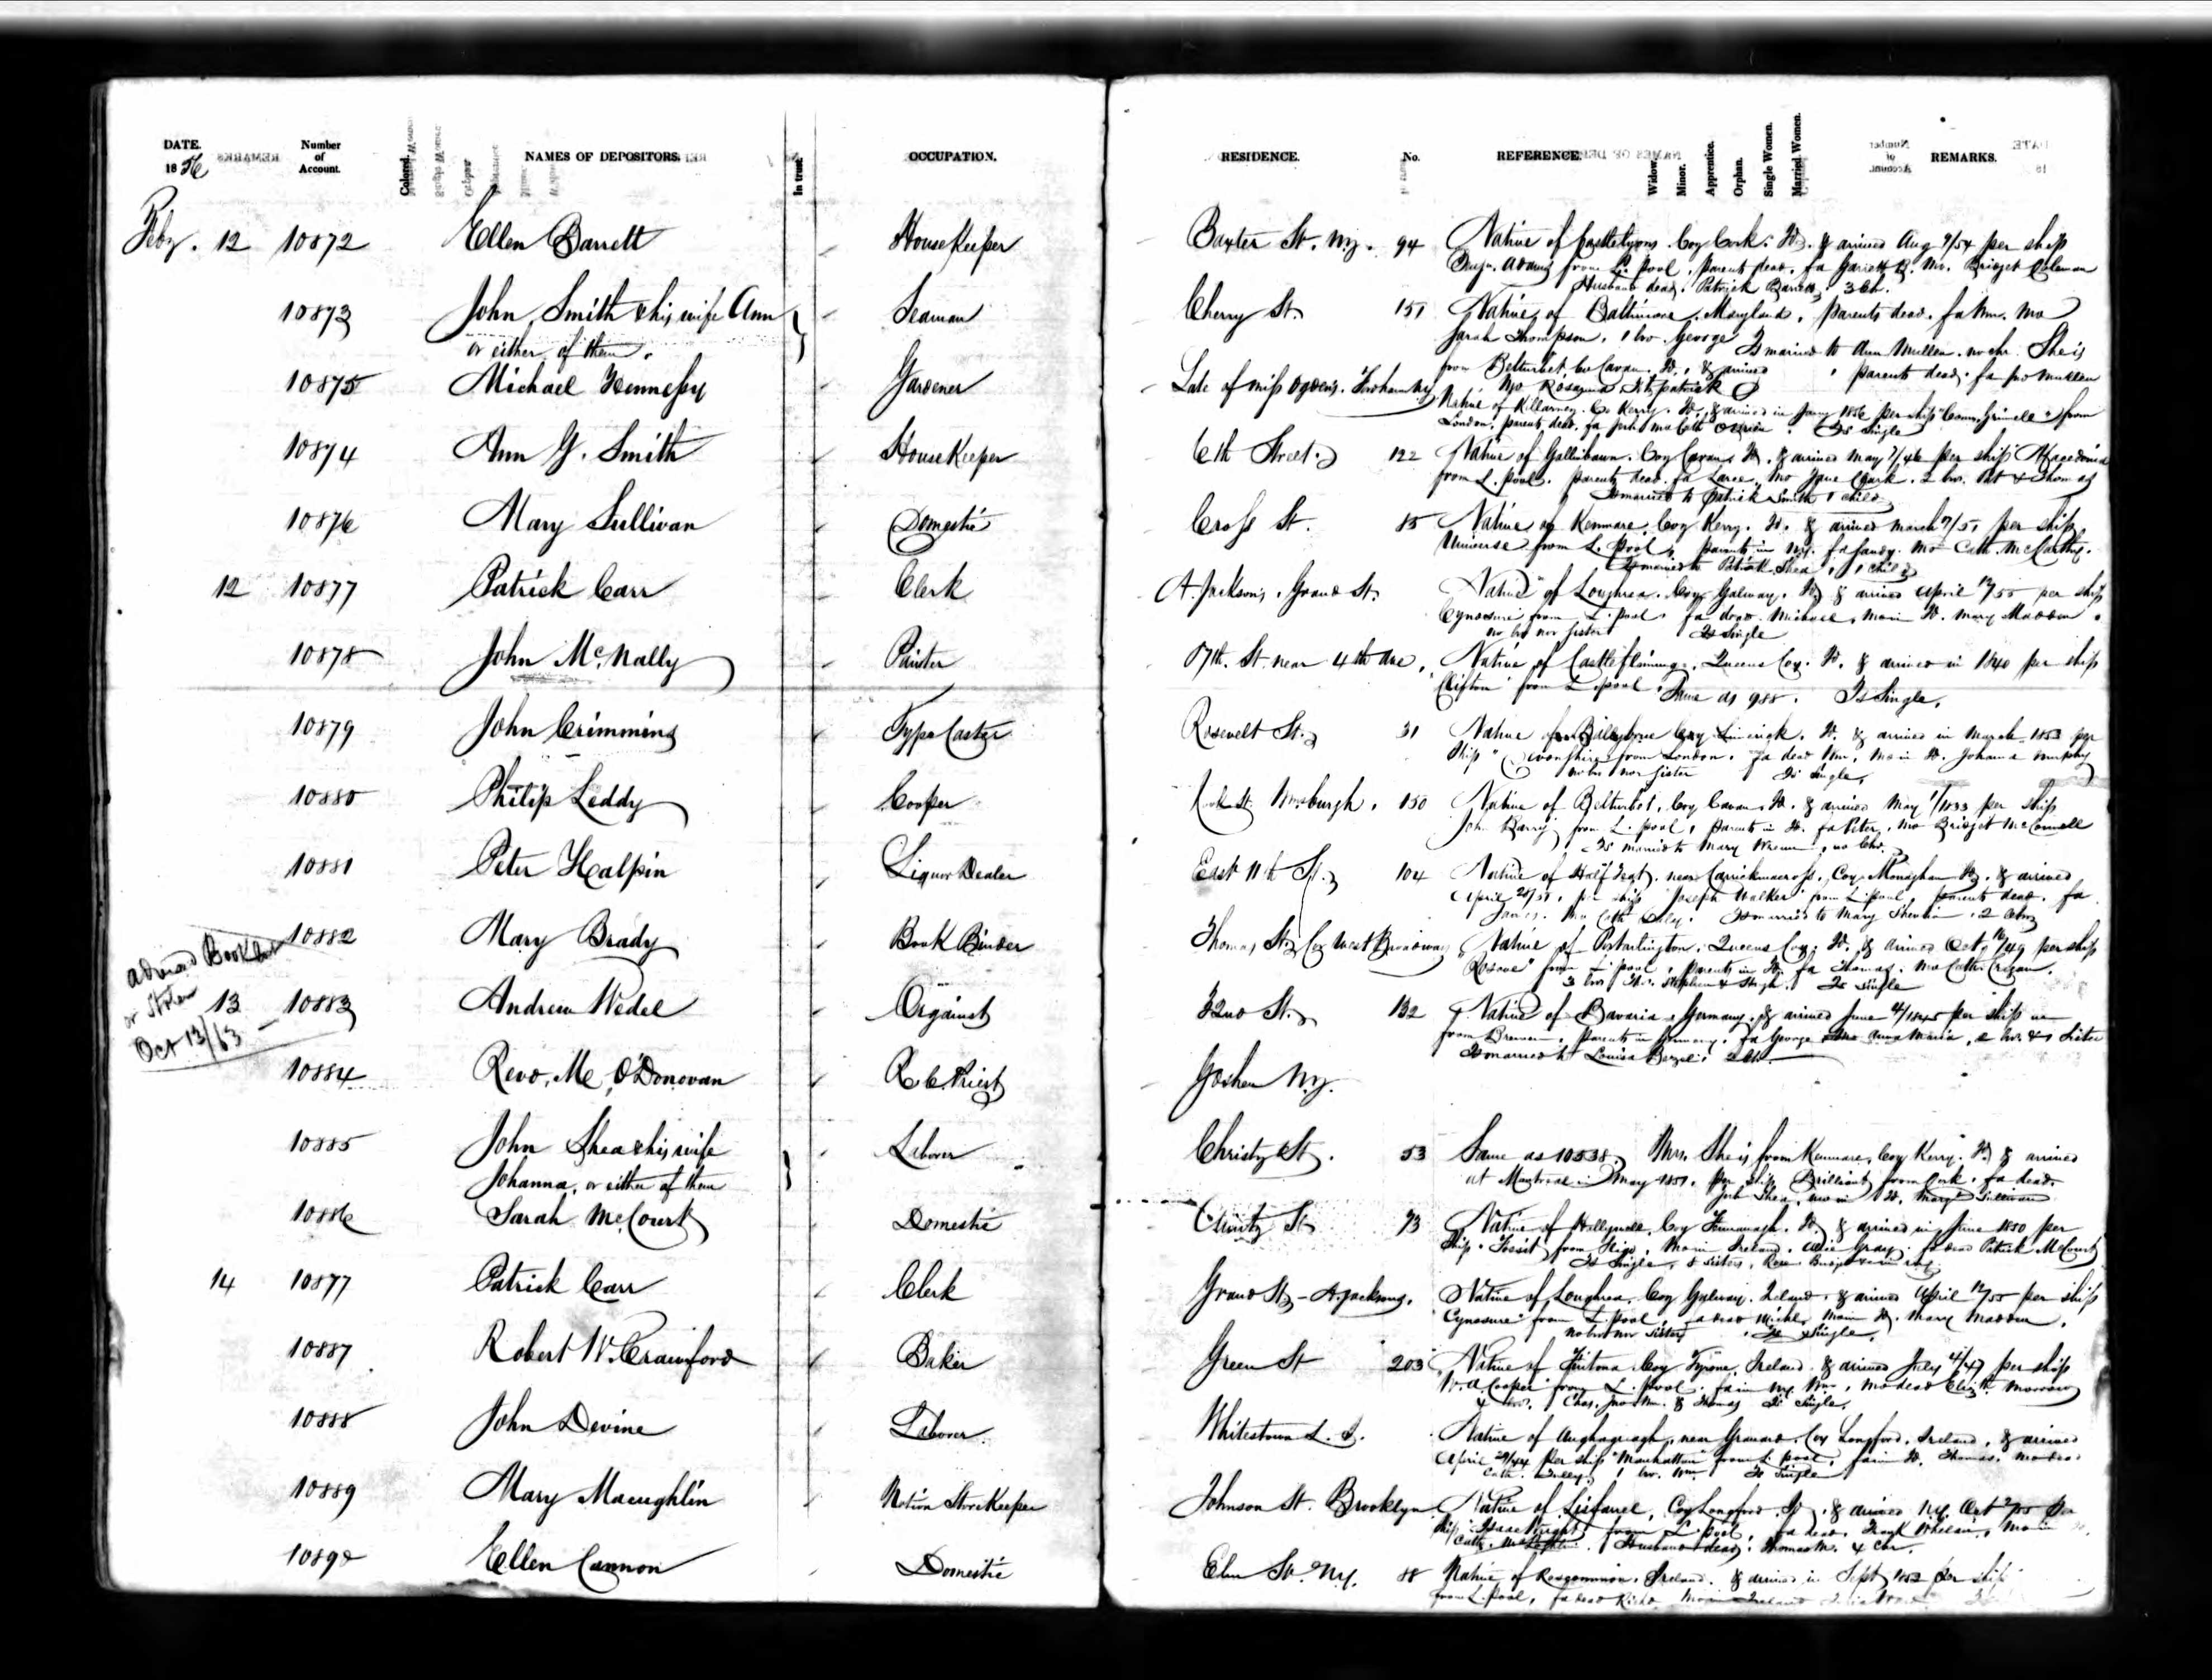 DATE. 1856 Number of Account. Colored. NAMES OF DEPOSITORS. In trust. OCCUPATION. RESIDENCE. No. REFERENCE. Widow. Minor. Apprentice. Orphan. Single Women. Married Women. REMARKS.
Feby. 12 10872 Ellen Barrett HouseKeeper Baxter St. N.Y. 94 Native of Castlelyons Coy Cork. Id. & arrived Aug 9/54 per ship
from L. pool. parents dead. fa Garrett B. Mo. Bridget Coleman
Husband dead. Patrick Barrett. 3 Ch.
10873 John Smith & his wife Ann Seaman Cherry St. 151 Native of Baltimore, Maryland. parents dead. fa Wm. Mo
or either of them. Sarah Thompson. 1 bro. George Is married to Ann Mullen. no chr. She is
from Belturbet, Co Cavan. Id. & arrived parents dead. fa Jno Mullen
Mo Rosanna Fitzpatrick
10875 Michael Hennessy Gardener Late of Miss Ogdens. Fordham NY
Native of Killarney. Co Kerry. Id. & arrived in Jany 1856 per ship "Corn. Grinnell" from
London. parents dead. fa Jerh Mo Cath Is Single
10874 Ann G. Smith HouseKeeper 6th Street. 122 Native of Coy Cavan. Id. & arrived May 7/46 per ship Macedonia
from L. pool. parents dead. fa Mo Jane Clark. 2 bro. Pat & Thomas
Is married to Patrick Smith 1 child
10876 Mary Sullivan Domestic Cross St. 85 Native of Kenmare Coy Kerry. Id. & arrived March 9/51 per ship
Universe from L. pool. parents in NY. fa Sandy. Mo Cath McCarthy.
Is married to Patrick Shea, 1 child
12 10877 Patrick Carr Clerk A. Jacksons, Grand St. Native of Loughrea. Coy Galway. Id. & arrived April 12/55 per ship
Cynosure from L. pool. fa dead Michael, Mo in Id. Mary Madden.
no bro nor sister Is Single
10878 John McNally Painter 87th. St. near 4th Ave. Native of Castlefleming. Queens Coy. Id. & arrived in 1840 per ship
"Clifton" from L. pool. Same as 988. Is Single.
10879 John Crimmins Type Caster Rosevelt St. 31 Native of Coy Limerick. Id. & arrived in March 1853 per
Ship "Devonshire" from London. fa dead Wm. Mo in Id. Johanna Murphy
no bro nor sister Is Single.
10880 Philip Leddy Cooper St. Wmsburgh. 150 Native of Belturbet. Coy Cavan. Id. & arrived May 1/1833 per ship
John Barry from L. pool, parents in Id. fa Peter. Mo Bridget McConnell
Is married to Mary no Chr.
10881 Peter Halpin Liquor Dealer East 11th St. 104 Native of near Carrickmacross. Coy Monaghan Id. & arrived
April 21/51, per ship "Joseph Walker" from L. pool, parents dead. fa
James. Mo Cath Is married to Mary 2 Chr
10882 Mary Brady Book Binder Thomas St. Cor West Broadway Native of Portarlington. Queens Coy. Id. & arrived Oct 16/49 per ship
"Roscoe" from L. pool, parents in Id. fa Thomas. Mo Cath
3 bro Stephen & Hugh. Is Single
advised Book lost
or Stolen
Oct 13/63
13 10883 Andrew Wedel Organist 32nd St. 132 Native of Bavaria, Germany. & arrived June 4/1845 per ship
from Bremen. parents in Germany. fa George Mo Anna Maria, 2 bro. & 1 Sister
Is married to Louisa 2 Ch.
10884 Revd. M. O'Donovan R. C. Priest Goshen N.Y.
10885 John Shea & his wife Labourer Christy St. 53 Same as 10538. Mrs. She is from Kenmare, Coy Kerry. Id. & arrived
Johanna, or either of them at Montreal in May 1851. per ship Brilliant from Cork. fa dead
Mo in Id. Mary Sullivan
10886 Sarah McCourt Domestic Christy St. 73 Native of Coy Fermanagh. Id. & arrived in June 1850 per
Ship from Sligo. Mo in Ireland. Gray. fa dead Patrick McCourt
Is Single, sisters, Rose
14 10877 Patrick Carr Clerk Grand St. - A. Jacksons. Native of Loughrea. Coy Galway. Ireland. & arrived April 12/55 per ship
"Cynosure" from L. pool, fa dead Michl, Mo in Id. Mary Madden.
no bro nor sister Is Single
10887 Robert W. Crawford Baker Green St 203 Native of Fintona Coy Tyrone, Ireland & arrived July 4/47 per ship
W. A. Cooper from L. pool. fa in NY. Wm, Mo dead Elizth Morrow
4 bro. Chas. Jno Wm. & Thomas Is Single.
10888 John Devine Laborer Whitestown L. I. Native of near Granard. Coy Longford. Ireland. & arrived
April 29/44 per ship "Manhattan" from L. pool, fa in Id. Thomas. Mo dead
Cath. 1 bro. Wm Is Single
10889 Mary Maeughlin Notion Store Keeper Johnson St. Brooklyn Native of Coy Longford Id. & arrived N.Y. Oct per
ship Isaac Wright from L. pool, fa dead. Whelan, Mo in
Cath. Husband dead. Thomas M. 4 chr.
10890 Ellen Cannon Domestic Elm St. N.Y. 88 Native of Roscommon. Ireland. & arrived in Sept 1853 per ship
from L. pool, fa dead Richd Mo in Ireland